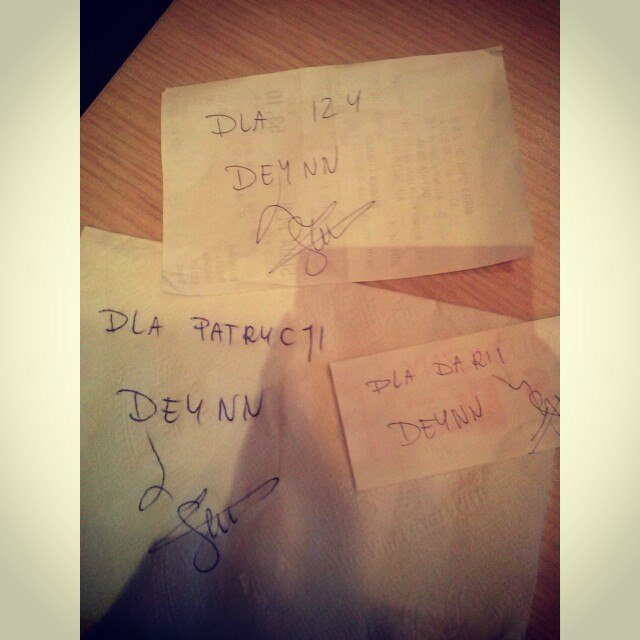 DLA IZY
DEYNN
DLA PATRYCJI
DEYNN
DLA DARII
DEYNN